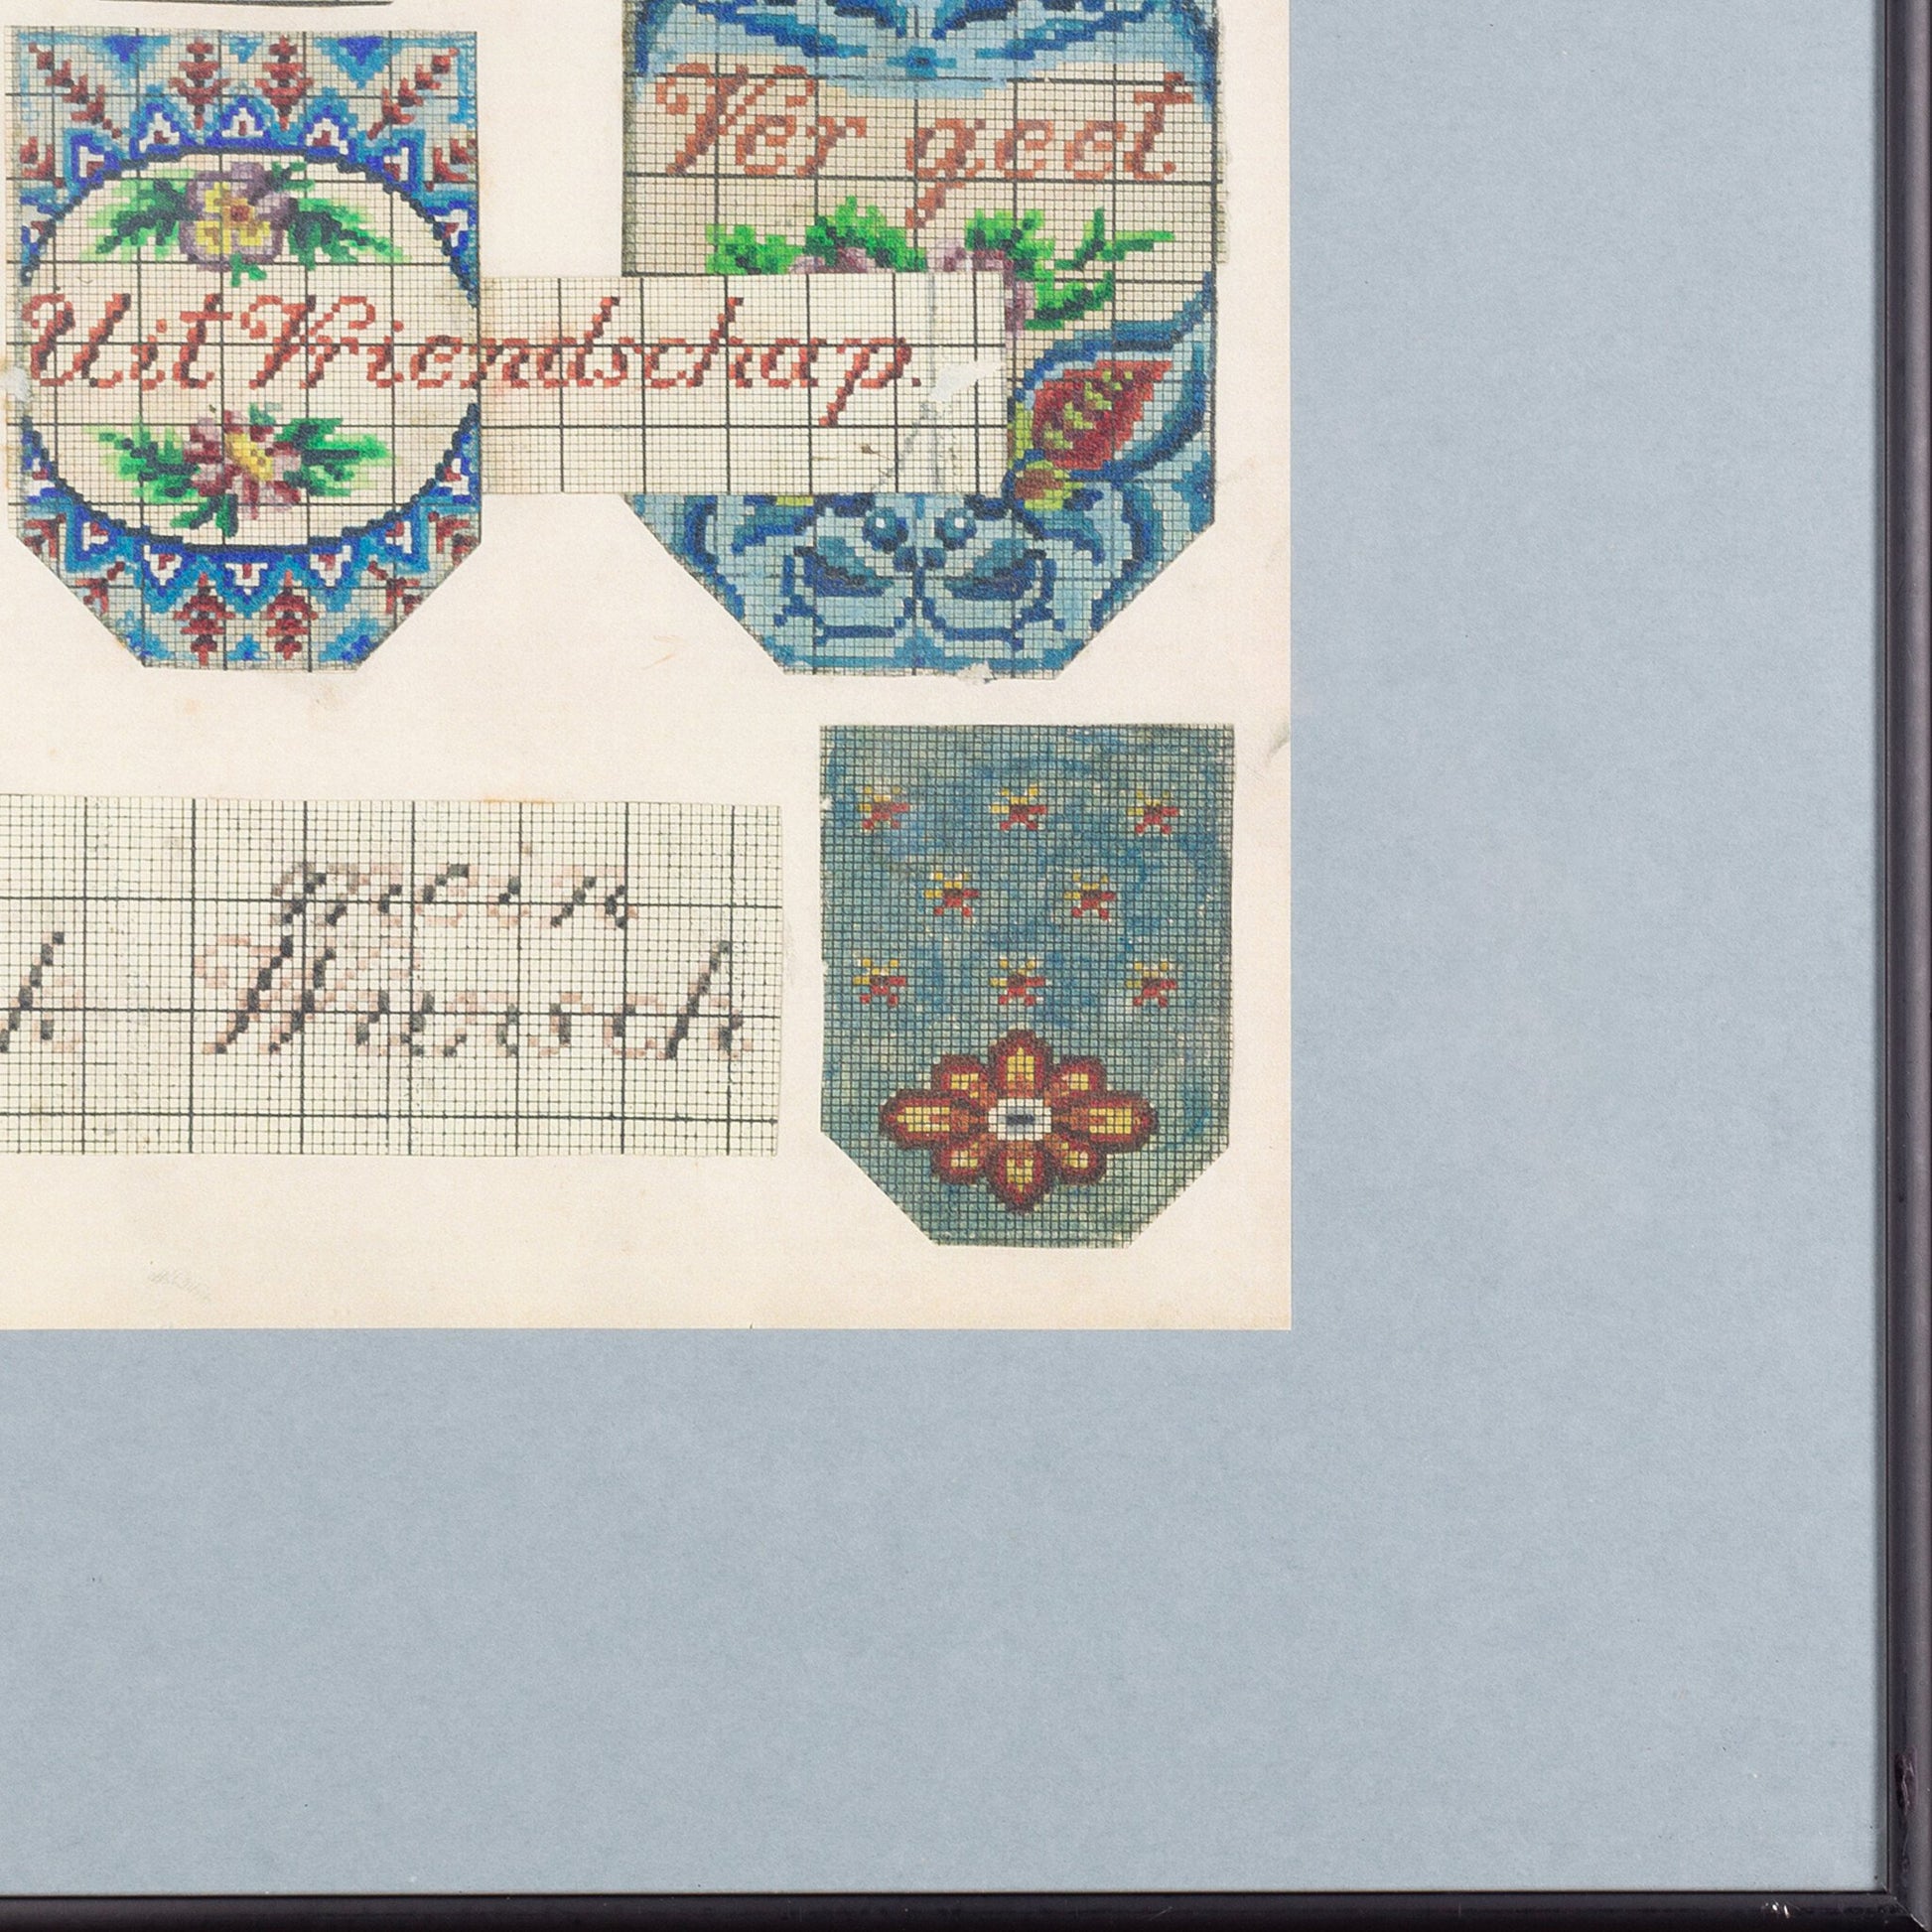 Ver geet
Uit Vriendschap.
mein